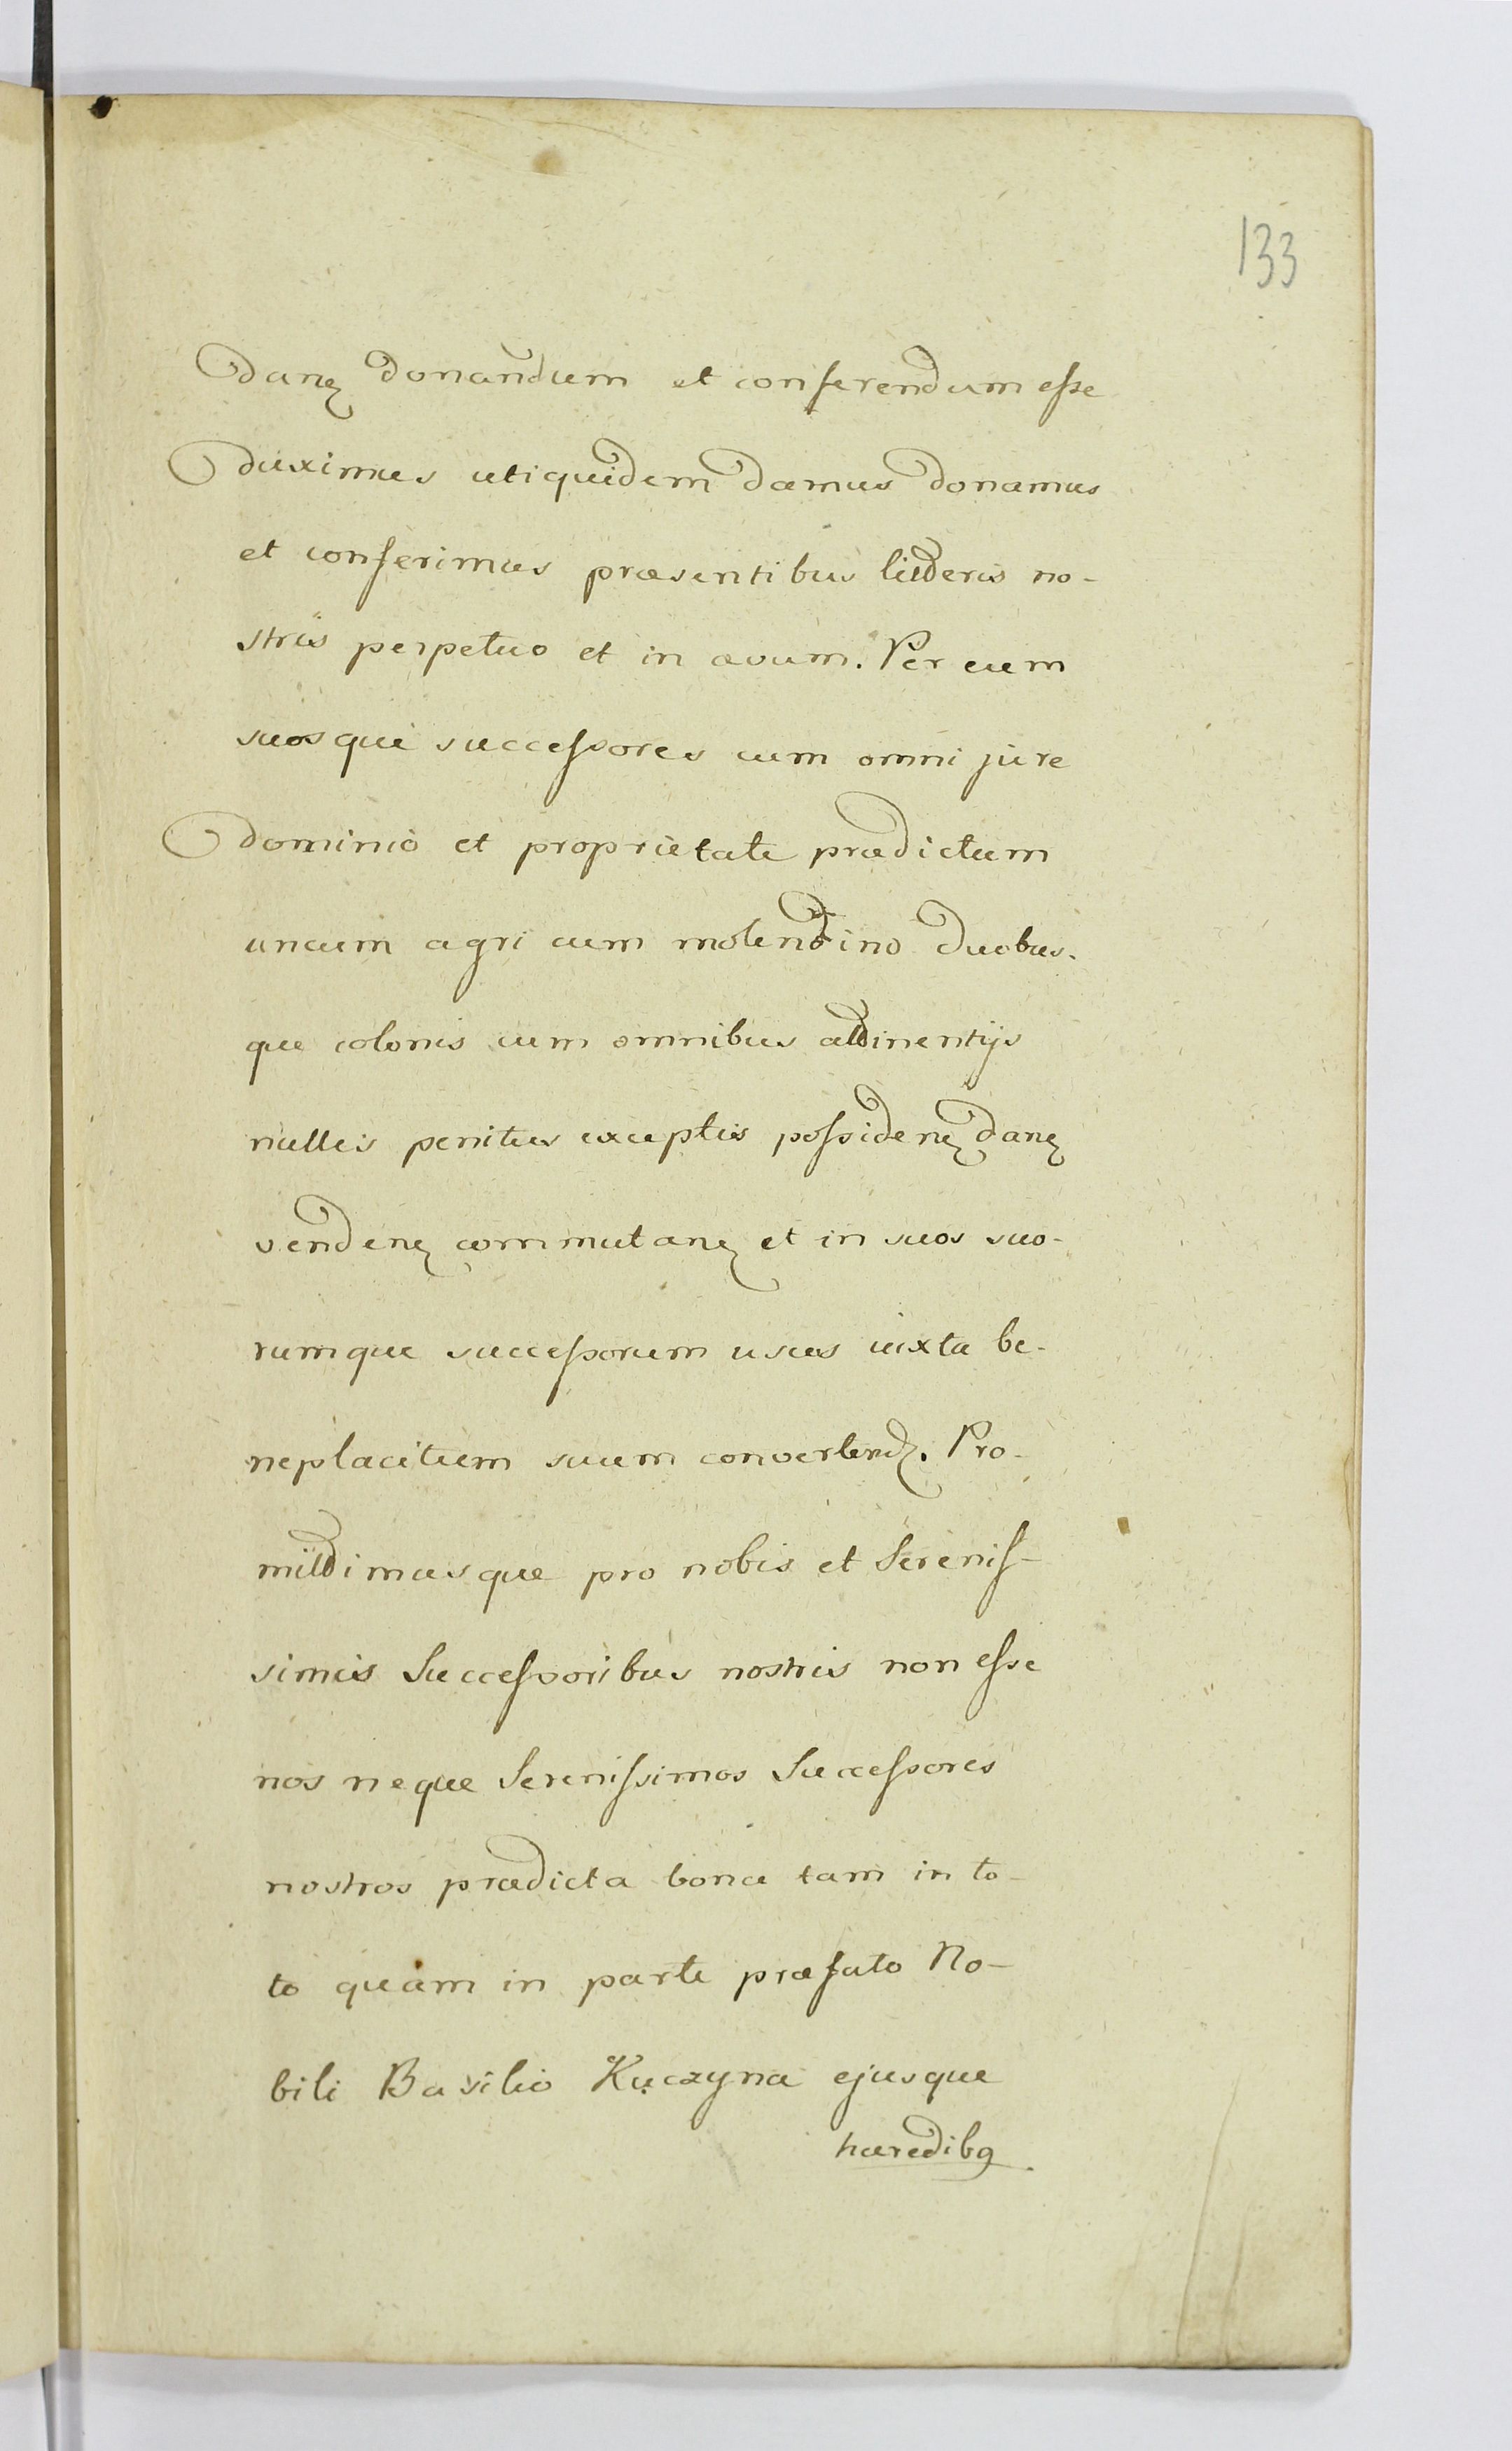 133
danę donandum et conferendum esse
duximus utiquidem damus donamus
et conferimus præsentibus litteris no-
stris perpetuo et in ævum. Per eum
suosque successores cum omni jure
dominio et proprietate prædictum
uncum agri cum molendino duobus-
que colonis cum omnibus attinentijs
nullis penitus exceptis possidenę danę
vendenę commutanę et in suos suo-
rumque successorum usus iuxta be-
neplacitum suum convertendę. Pro-
mittimusque pro nobis et Serenis-
simis Successoribus nostris non esse
nos neque Serenissimos Successores
nostros prædicta bona tam in to-
to quam in parte præfato No-
bili Basilio Kuczyna ejusque
hæredibꝰ